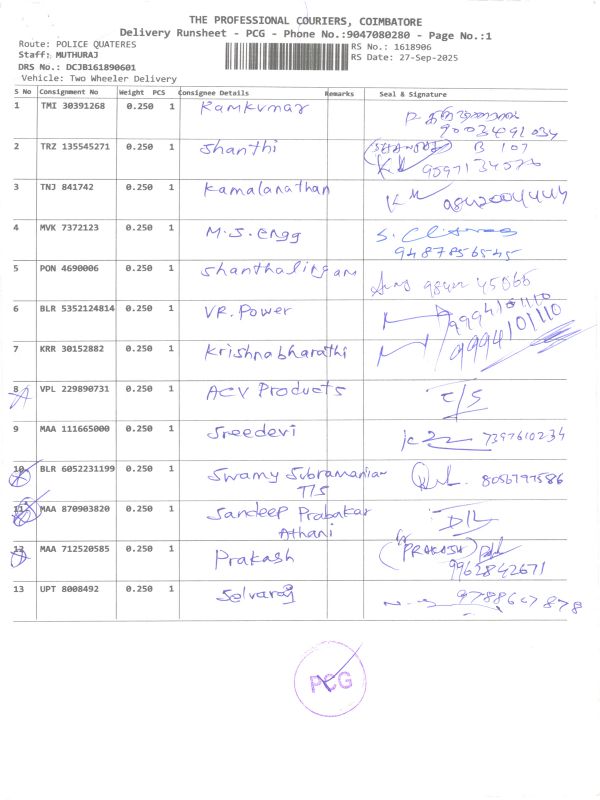 THE PROFESSIONAL COURIERS, COIMBATORE
Delivery Runsheet - PCG - Phone No.:9047080280 - Page No.:1
Route: POLICE QUATERES RS No.: 1618906
Staff: MUTHURAJ RS Date: 27-Sep-2025
DRS No.: DCJB161890601
Vehicle: Two Wheeler Delivery
S No Consignment No Weight PCS Consignee Details Remarks Seal & Signature
1 TMI 30391268 0.250 1 Ramkumar
9003491034
2 TRZ 135545271 0.250 1 Shanthi (SHANTHI) B 107
3 TNJ 841742 0.250 1 Kamalanathan KM
4 MVK 7372123 0.250 1 M.S. engg
9487856545
5 PON 4690006 0.250 1 Shanthalingam 98422 45065
6 BLR 5352124814 0.250 1 VR. Power 9994101110
7 KRR 30152882 0.250 1 Krishnabharathi 9994101110
8 VPL 229890731 0.250 1 ACV Products C/S
9 MAA 111665000 0.250 1 Sreedevi 7397610234
10 BLR 6052231199 0.250 1 Swamy Subramanian 8056797586
T/S
11 MAA 870903820 0.250 1 Sandeep Prabakar D/L
Athani
12 MAA 712520585 0.250 1 Prakash (PRAKASH)
9962842671
13 UPT 8008492 0.250 1 Selvaraj 9788647878
PCG